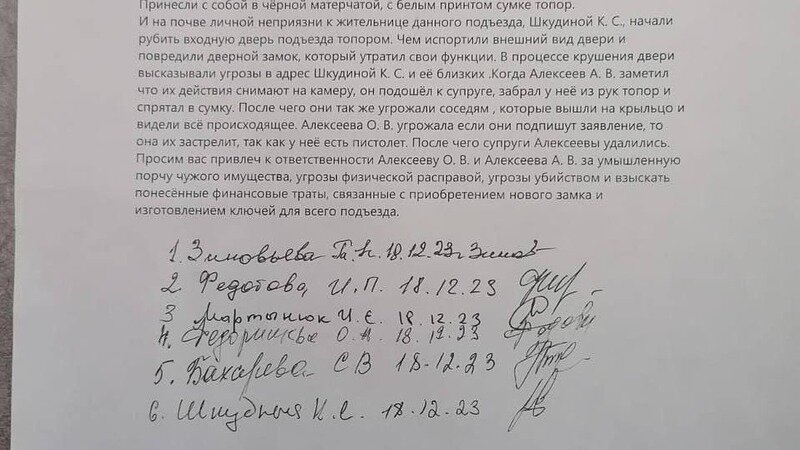 Принесли с собой в чёрной матерчатой, с белым принтом сумке топор.
И на почве личной неприязни к жительнице данного подъезда, Шкудиной К. С., начали
рубить входную дверь подъезда топором. Чем испортили внешний вид двери и
повредили дверной замок, который утратил свои функции. В процессе крушения двери
высказывали угрозы в адрес Шкудиной К. С. и её близких .Когда Алексеев А. В. заметил
что их действия снимают на камеру, он подошёл к супруге, забрал у неё из рук топор и
спрятал в сумку. После чего они так же угрожали соседям , которые вышли на крыльцо и
видели всё происходящее. Алексеева О. В. угрожала если они подпишут заявление, то
она их застрелит, так как у неё есть пистолет. После чего супруги Алексеевы удалились.
Просим вас привлеч к ответственности Алексееву О. В. и Алексеева А. В. за умышленную
порчу чужого имущества, угрозы физической расправой, угрозы убийством и взыскать
понесённые финансовые траты, связанные с приобретением нового замка и
изготовлением ключей для всего подъезда.
1. Зиновьева 18.12.23г
2. Федотова, И. П. 18.12.23
3 Мартынюк И. Е. 18.12.23
4. 18.12.23
5. Бахарева С В 18-12.23
6. К. С. 18.12.23